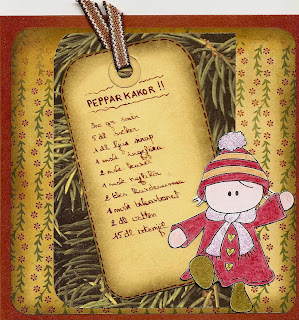 PEPPARKAKOR!!
300 gr smör
5 dl socker
1 dl ljus sirap
1 msk ingefära
2 msk kanel
1 msk nejlika
2 tsk kardemumma
1 msk bikarbonat
2 dl vatten
15 dl vetemjöl